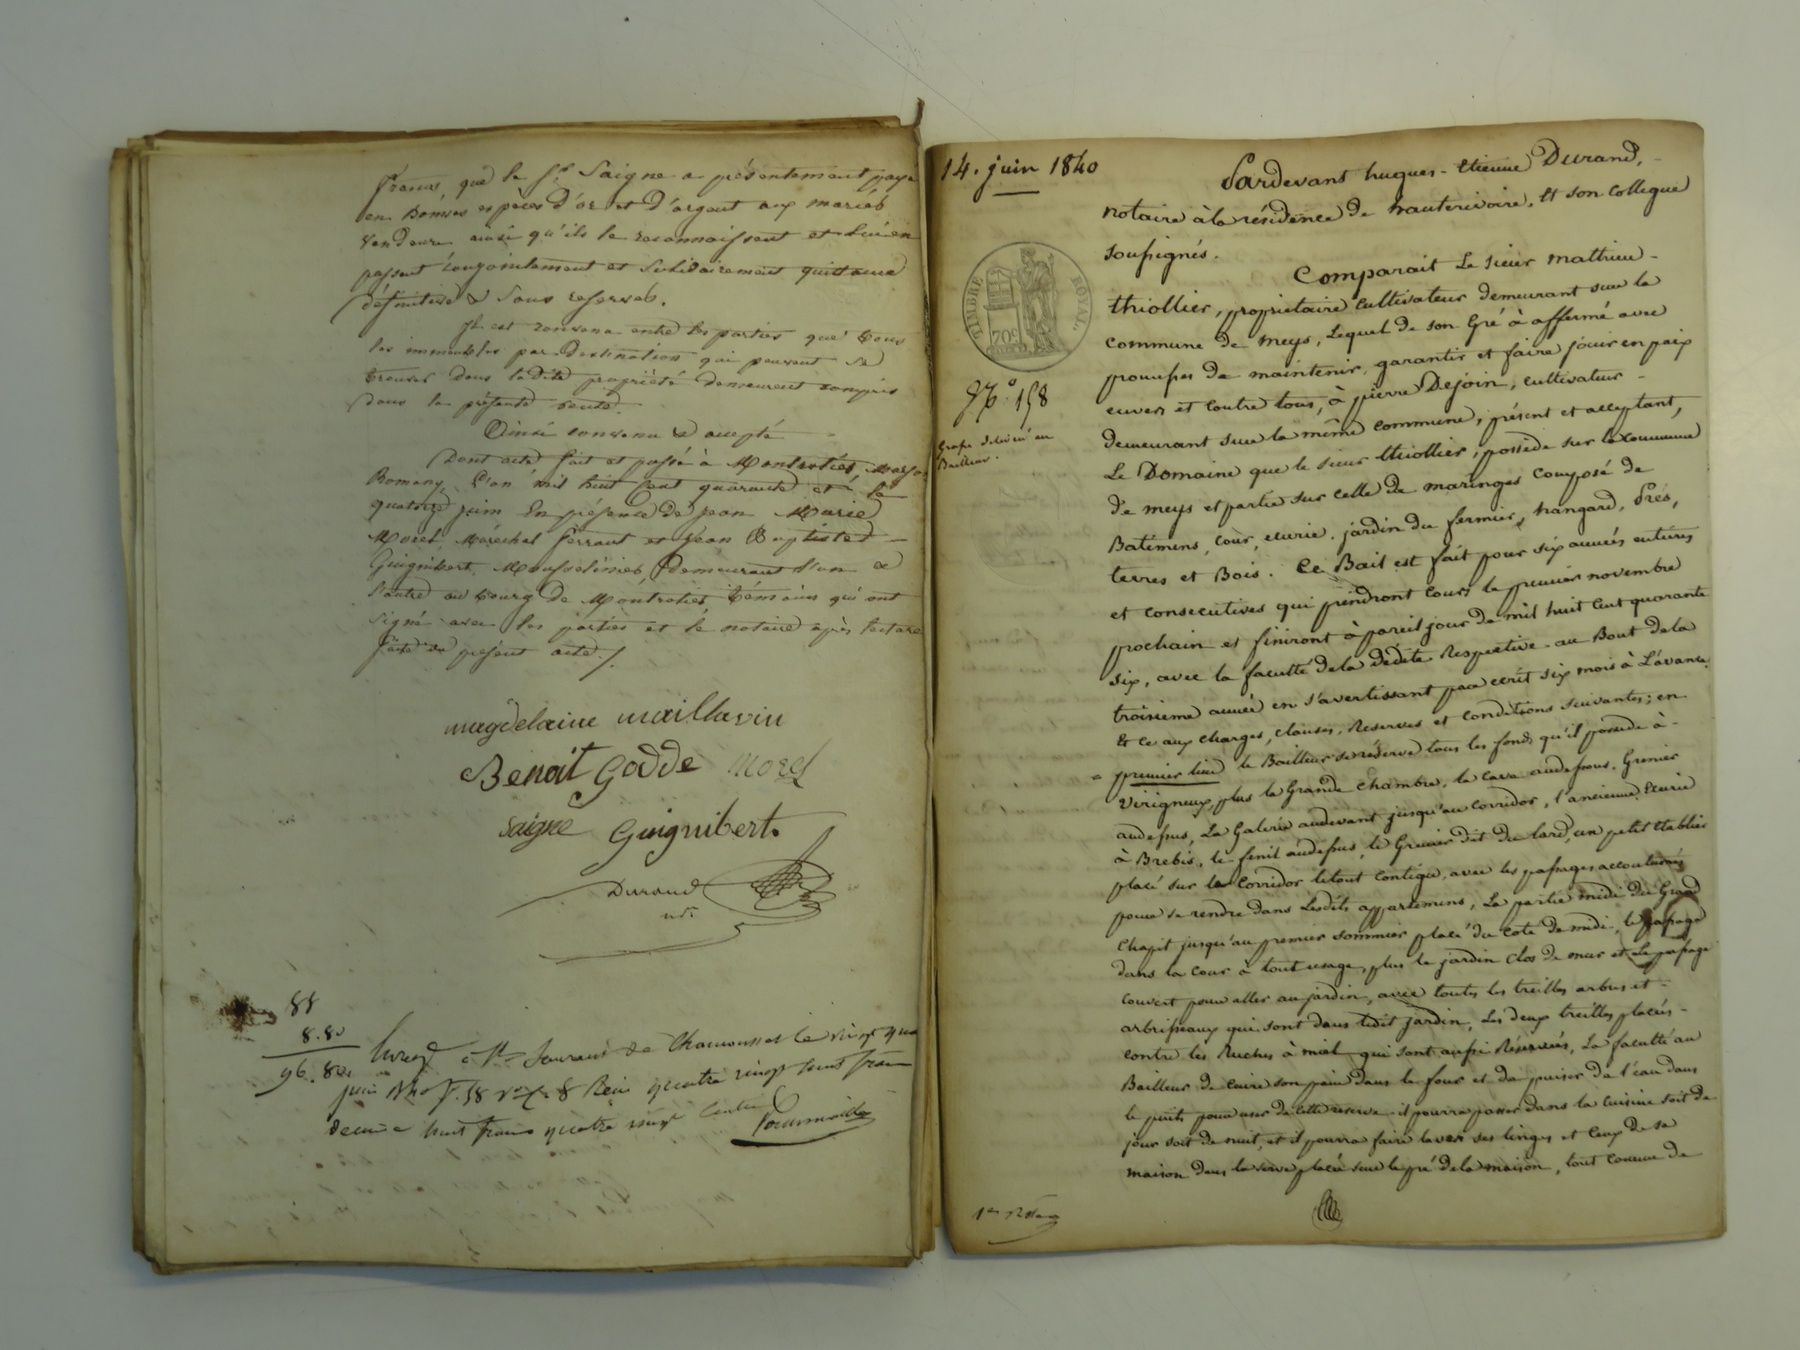 francs, que le Sr. Saigne a présentement payé
en Bonnes espèces d'or et d'argent aux mariés
vendeurs ainsi qu'ils le reconnaissent et lui en
passent conjointement et solidairement quittance
définitive & sans reserves.
Il est convenu entre les parties que tous
les immeubles par destination qui peuvent se
trouver dans ladite propriété demeurent compris
dans la présente vente.
Ainsi convenu & accepté
Dont acte fait et passé à Montrotier, Maison
Romany L'an mil huit cent quarante et le
quatorze juin En présence de jean Marie
Morel, Maréchal ferrant et Jean Baptiste
Guignibert, Mousselinier, demeurant l'un &
l'autre au bourg de Montrotier témoins qui ont
signé avec les parties et le notaire après lecture
faite du présent acte./.
magdelaine maillavin
Benoit Godde Morel
Saigne Guignibert.
Durand
nre
88
8.80
96.80
Enregé à St. Laurent de Chamousset le vingt quatre
juin 1840 f. 58 vo c. 8 Reçu quatre vingt huit francs
decime huit francs quatre vingt centimes
14. juin 1840
TIMBRE ROYAL
70c
No. 158
Grosse délivrée au
Bailleur.
Pardevant hugues-Etienne Durand,
notaire à la résidence de hauterivoire, Et son Collegue
soussignés.
Comparait Le sieur mathieu
thiollier, proprietaire cultivateur demeurant sur la
commune de meys, Lequel de son Gré à affermé avec
promesses de maintenir, garantir et faire jouir en paix
envers et contre tous, à pierre Dejoin, cultivateur
demeurant sur la même commune, présent et acceptant,
Le Domaine que le sieur thiollier, possède sur la commune
de meys et partie sur celle de maringes composé de
Batimens, cour, ecurie, jardin du fermier, hangard, Prés,
terres et Bois. Ce Bail est fait pour six années entières
et consécutives qui prendront cours le premier novembre
prochain et finiront à pareil jour de mil huit cent quarante
six, avec la faculté de la dédite Respective au Bout de la
troisieme année en s'avertissant par ecrit six mois à L'avance.
Et ce aux charges, clauses, Reserves et conditions suivantes; en
= premier lieu le Bailleur se réserve tous les fonds qu'il possede à
virigneux, plus la Grande chambre, la cave audessous, Grenier
audessus, La Galerie audevant jusqu'au corridor, l'ancienne Ecurie
à Brebis, le fenil audessus, le Grenier dit du lard, un petit Etablier
placé sur le Corridor le tout contigu, avec les passages accoutumés
pour se rendre dans Lesdits appartemens, La partie midi du Grand
Chapit jusqu'au premier sommier placé du coté de midi, le passage
dans la cour à tout usage, plus le jardin clos de mur et le passage
couvert pour aller au jardin, avec toutes les treilles arbres et
arbrisseaux qui sont dans ledit jardin, Les deux treilles placés
contre les Ruches à miel qui sont aussi Réservées, La faculté au
Bailleur de cuire son pain dans le four et de puiser de l'eau dans
le puits pour user de cette reserve il pourra passer dans la cuisine soit de
jour soit de nuit, et il pourra faire laver ses linges et ceux de sa
maison dans la serve placée sur le pré de la maison, tout comme de
1er Rôle